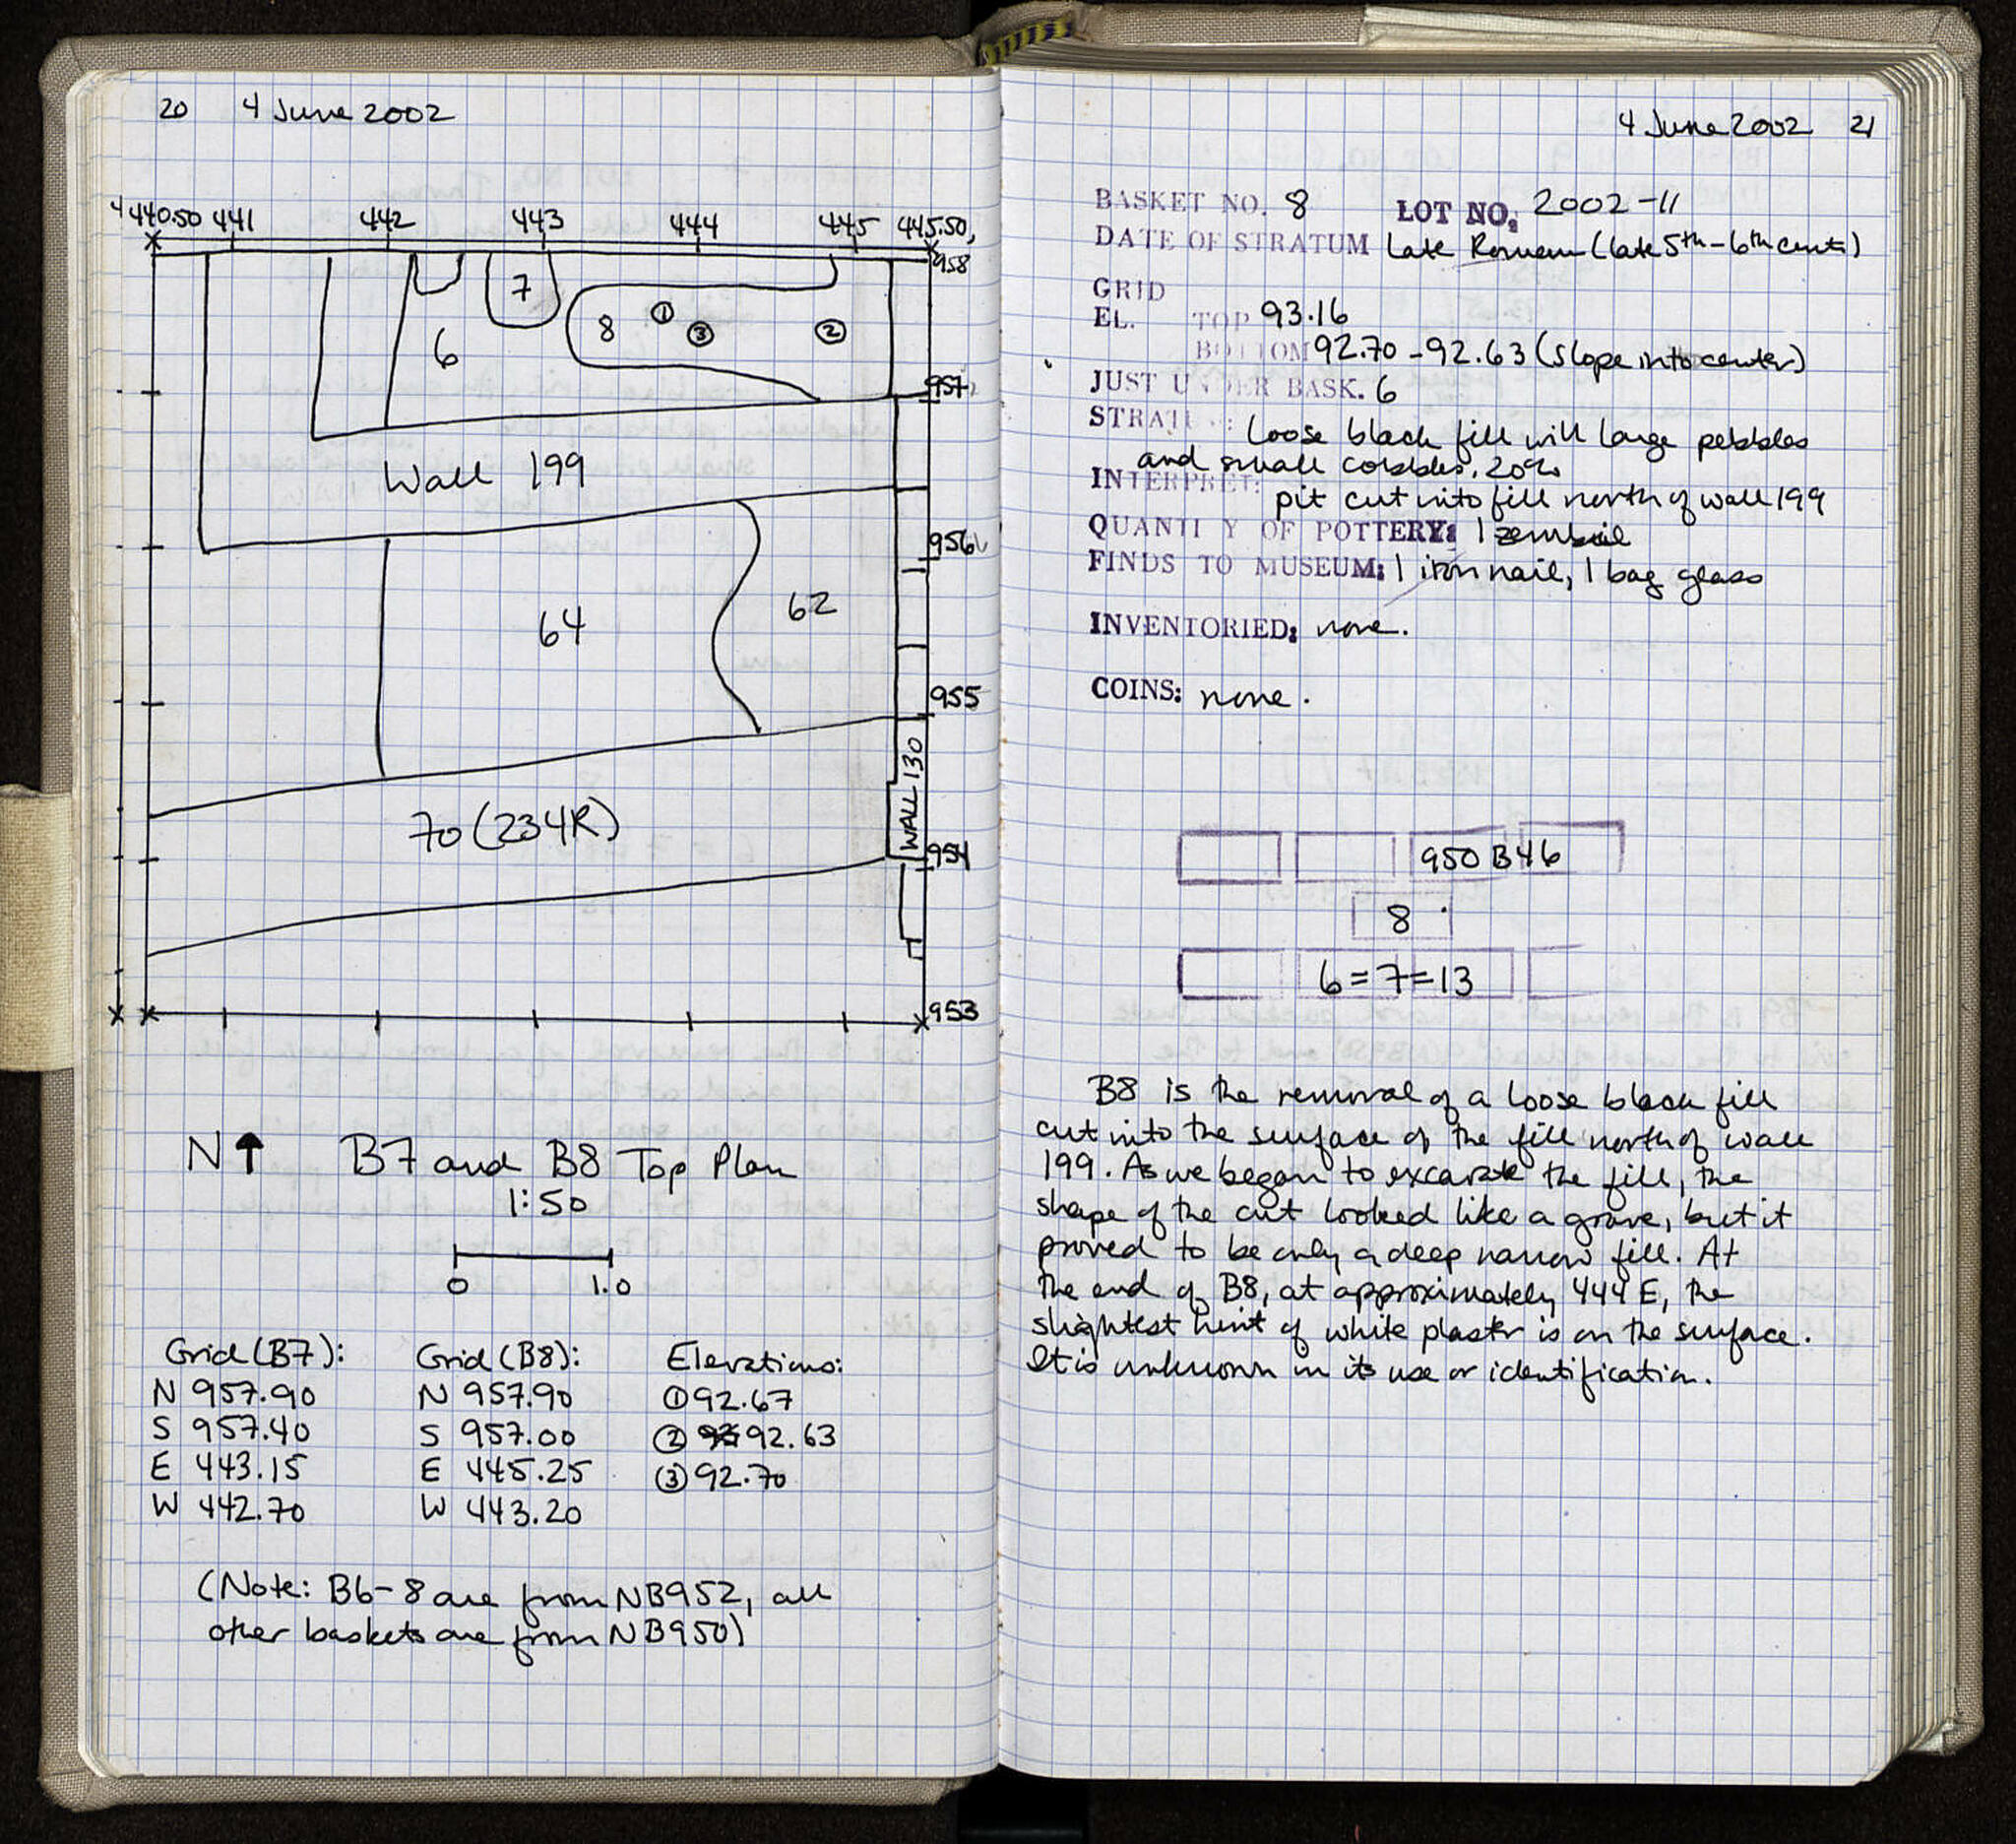 20 4 June 2002
440.50 441 442 443 444 445 445.50,
958
7
8 ① ③ ②
6
957
Wall 199
956
64
62
955
WALL 130
70 (234R)
954
953
N↑ B7 and B8 Top Plan
1:50
0 1.0
Grid (B7): Grid (B8): Elevations:
N 957.90 N 957.90 ① 92.67
S 957.40 S 957.00 ② 92.63
E 443.15 E 445.25 ③ 92.70
W 442.70 W 443.20
(Note: B6-8 are from NB952, all
other baskets are from NB950)
4 June 2002 21
BASKET NO. 8 LOT NO. 2002-11
DATE OF STRATUM Late Roman (late 5th - 6th cent)
GRID
EL. TOP 93.16
BOTTOM 92.70 - 92.63 (slope into center)
JUST UNDER BASK. 6
STRATUM: loose black fill will large pebbles
and small cobbles, 20%
INTERPRET: pit cut into fill north of wall 199
QUANTITY OF POTTERY: 1 zembil
FINDS TO MUSEUM: 1 iron nail, 1 bag glass
INVENTORIED: none.
COINS: none.
950 B46
8
6=7=13
B8 is the removal of a loose black fill
cut into the surface of the fill north of wall
199. As we began to excavate the fill, the
shape of the cut looked like a grave, but it
proved to be only a deep narrow fill. At
the end of B8, at approximately 444 E, the
slightest hint of white plaster is on the surface.
It is unknown in its use or identification.